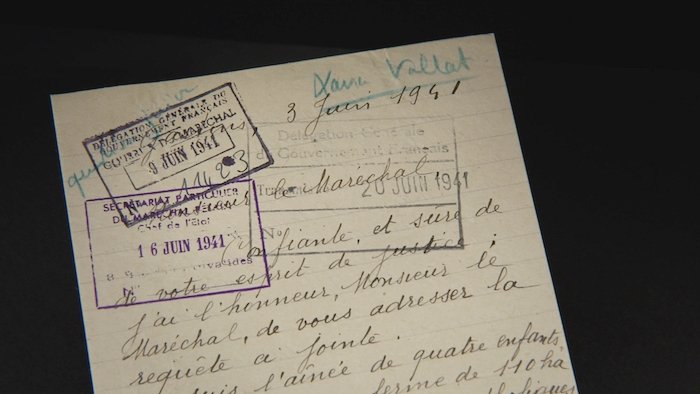 Xavier Vallat
3 Juin 1941
DÉLÉGATION GÉNÉRALE DU
GOUVERNEMENT FRANÇAIS
COURRIER DU MARÉCHAL
9 JUIN 1941
N° 11423
Délégation Générale
du Gouvernement Français
20 JUIN 1941
N°
SECRÉTARIAT PARTICULIER
DU MARÉCHAL PÉTAIN
Chef de l'État
16 JUIN 1941
Monsieur le Maréchal
Confiante, et sûre de
de votre esprit de justice,
j'ai l'honneur, Monsieur le
Maréchal, de vous adresser la
requête ci jointe.
suis l'aînée de quatre enfants,
ferme de 110 ha